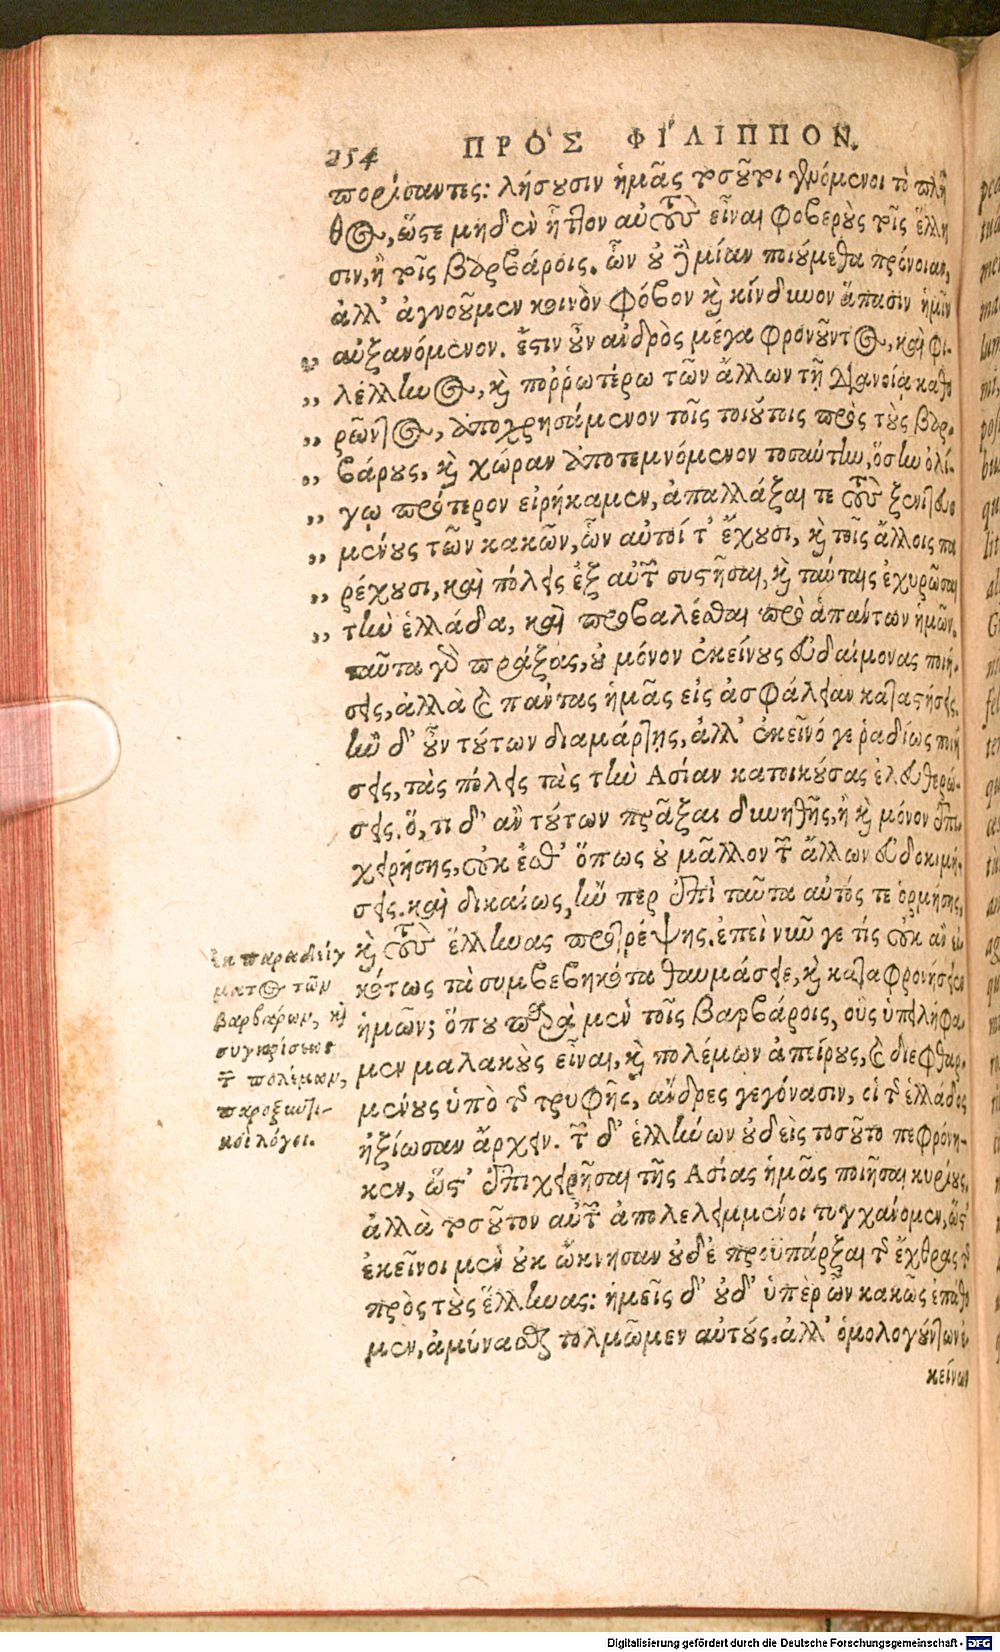 254 ΠΡΟ'Σ ΦΙ'ΛΙΠΠΟΝ.
πορίσαντες: λήσουσιν ἡμᾶς τοσοῦτοι γενόμενοι τὸ πλῆ
θος, ὥστε μηδὲν ἧττον αὐτοὺς εἶναι φοβεροὺς τοῖς ἕλλη
σιν, ἢ τοῖς βαρβάροις. ὧν οὐδεμίαν ποιούμεθα πρόνοιαν,
ἀλλ' ἀγνοοῦμεν κοινὸν φόβον καὶ κίνδυνον ἅπασιν ἡμῖν
„ αὐξανόμενον. ἔστιν οὖν ἀνδρὸς μέγα φρονοῦντος, καὶ φι-
„ λέλληνος, καὶ πορρωτέρω τῶν ἄλλων τῇ διανοίᾳ καθο
„ ρῶντος, ἀποχρησάμενον τοῖς τοιούτοις πρὸς τοὺς βαρ-
„ βάρους, καὶ χώραν ἀποτεμνόμενον τοσαύτην, ὅσην ὀλί-
„ γῳ πρότερον εἰρήκαμεν, ἀπαλλάξαι τε τοὺς ξενιτευο
„ μένους τῶν κακῶν, ὧν αὐτοί τ' ἔχουσι, καὶ τοῖς ἄλλοις πα
„ ρέχουσι, καὶ πόλεις ἐξ αὐτῶν συστῆσαι, καὶ ταύταις ἐχυρῶσαι
„ τὴν ἑλλάδα, καὶ προβαλέσθαι πρὸ ἁπάντων ἡμῶν.
ταῦτα γὰρ πράξας, οὐ μόνον ἐκείνους εὐδαίμονας ποιή-
σεις, ἀλλὰ καὶ πάντας ἡμᾶς εἰς ἀσφάλειαν καταστήσεις.
ἢν δ' οὖν τούτων διαμάρτῃς, ἀλλ' ἐκεῖνό γε ῥαδίως ποιή
σεις, τὰς πόλεις τὰς τὴν Ἀσίαν κατοικούσας ἐλευθερώ-
σεις. ὅ, τι δ' ἂν τούτων πρᾶξαι δυνηθῇς, ἢ καὶ μόνον ἐπι-
χειρήσῃς, οὐκ ἔσθ' ὅπως οὐ μᾶλλον τῶν ἄλλων εὐδοκιμή-
σεις. καὶ δικαίως, ἤν περ ἐπὶ ταῦτα αὐτός τε ὁρμήσῃς,
καὶ τοὺς ἕλληνας προτρέψῃς. ἐπεὶ νῦν γε τίς οὐκ ἂν εἰ
κότως τὰ συμβεβηκότα θαυμάσειε, καὶ καταφρονήσειεν
ἡμῶν; ὅπου παρὰ μὲν τοῖς βαρβάροις, οὓς ὑπειλήφα-
μεν μαλακοὺς εἶναι, καὶ πολέμων ἀπείρους, καὶ διεφθαρ-
μένους ὑπὸ τῆς τρυφῆς, ἄνδρες γεγόνασιν, οἱ τῆς ἑλλάδος
ἠξίωσαν ἄρχειν. τῶν δ' ἑλλήνων οὐδεὶς τοσοῦτο πεφρόνη-
κεν, ὥστ' ἐπιχειρῆσαι τῆς Ἀσίας ἡμᾶς ποιῆσαι κυρίους.
ἀλλὰ τοσοῦτον αὐτῶν ἀπολελειμμένοι τυγχάνομεν, ὥστ'
ἐκεῖνοι μὲν οὐκ ὤκνησαν οὐδὲ προϋπάρξαι τῆς ἔχθρας τῆς
πρὸς τοὺς ἕλληνας: ἡμεῖς δ' οὐδ' ὑπὲρ ὧν κακῶς ἐπάθο
μεν, ἀμύνασθαι τολμῶμεν αὐτούς. ἀλλ' ὁμολογούντων ἐ
κείνων
Ἐκ παραδείγ
ματος τῶν
βαρβάρων, καὶ
συγκρίσεως
τῶν πολέμων,
παροξυντι-
κοὶ λόγοι.
Digitalisierung gefördert durch die Deutsche Forschungsgemeinschaft - DFG